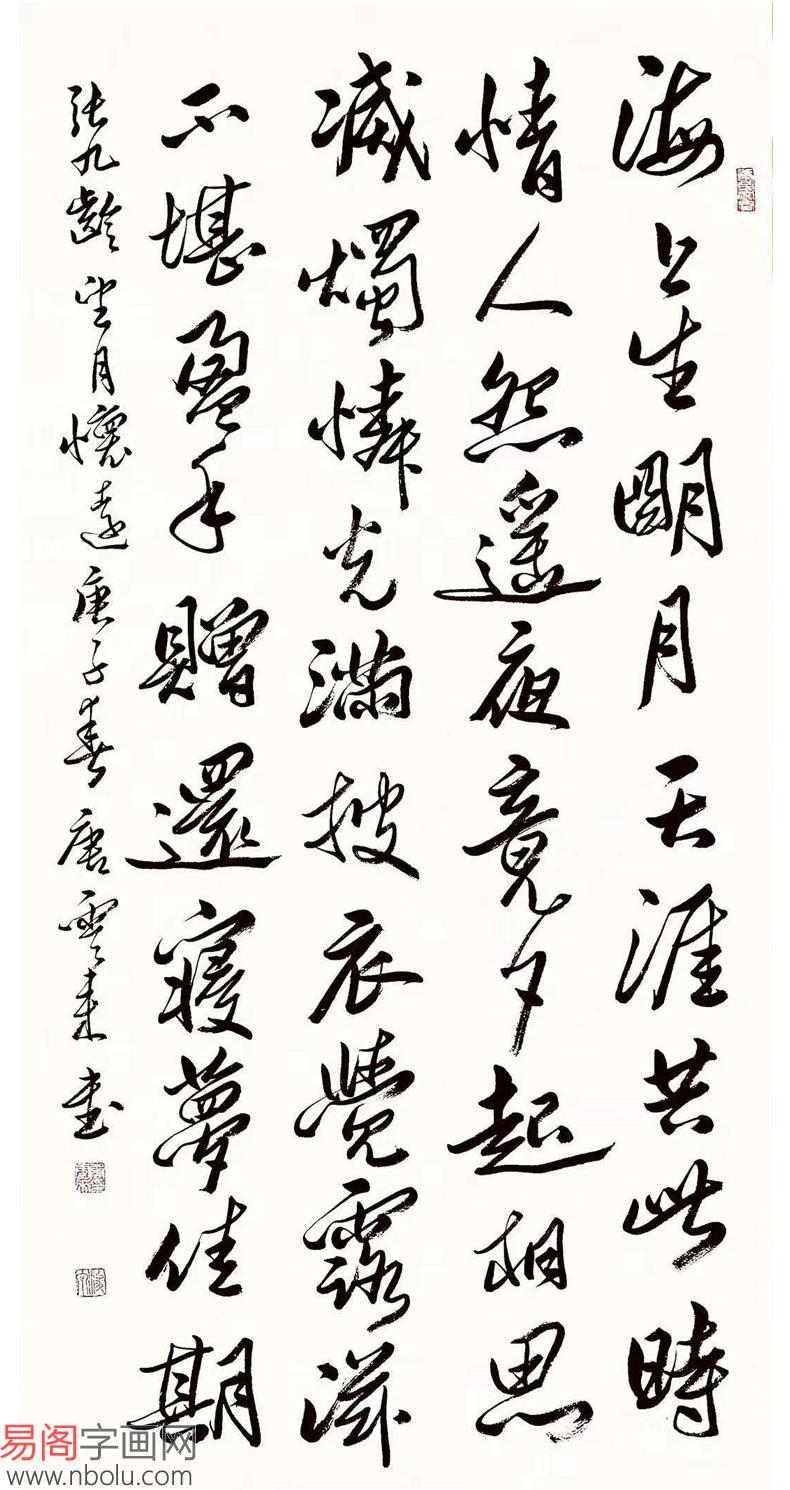 海上生明月天涯共此時
情人怨遥夜竟夕起相思
滅燭憐光滿披衣覺露滋
不堪盈手贈還寢夢佳期
張九齡望月懷遠庚子春唐雲来書
易阁字画网
www.nbolu.com